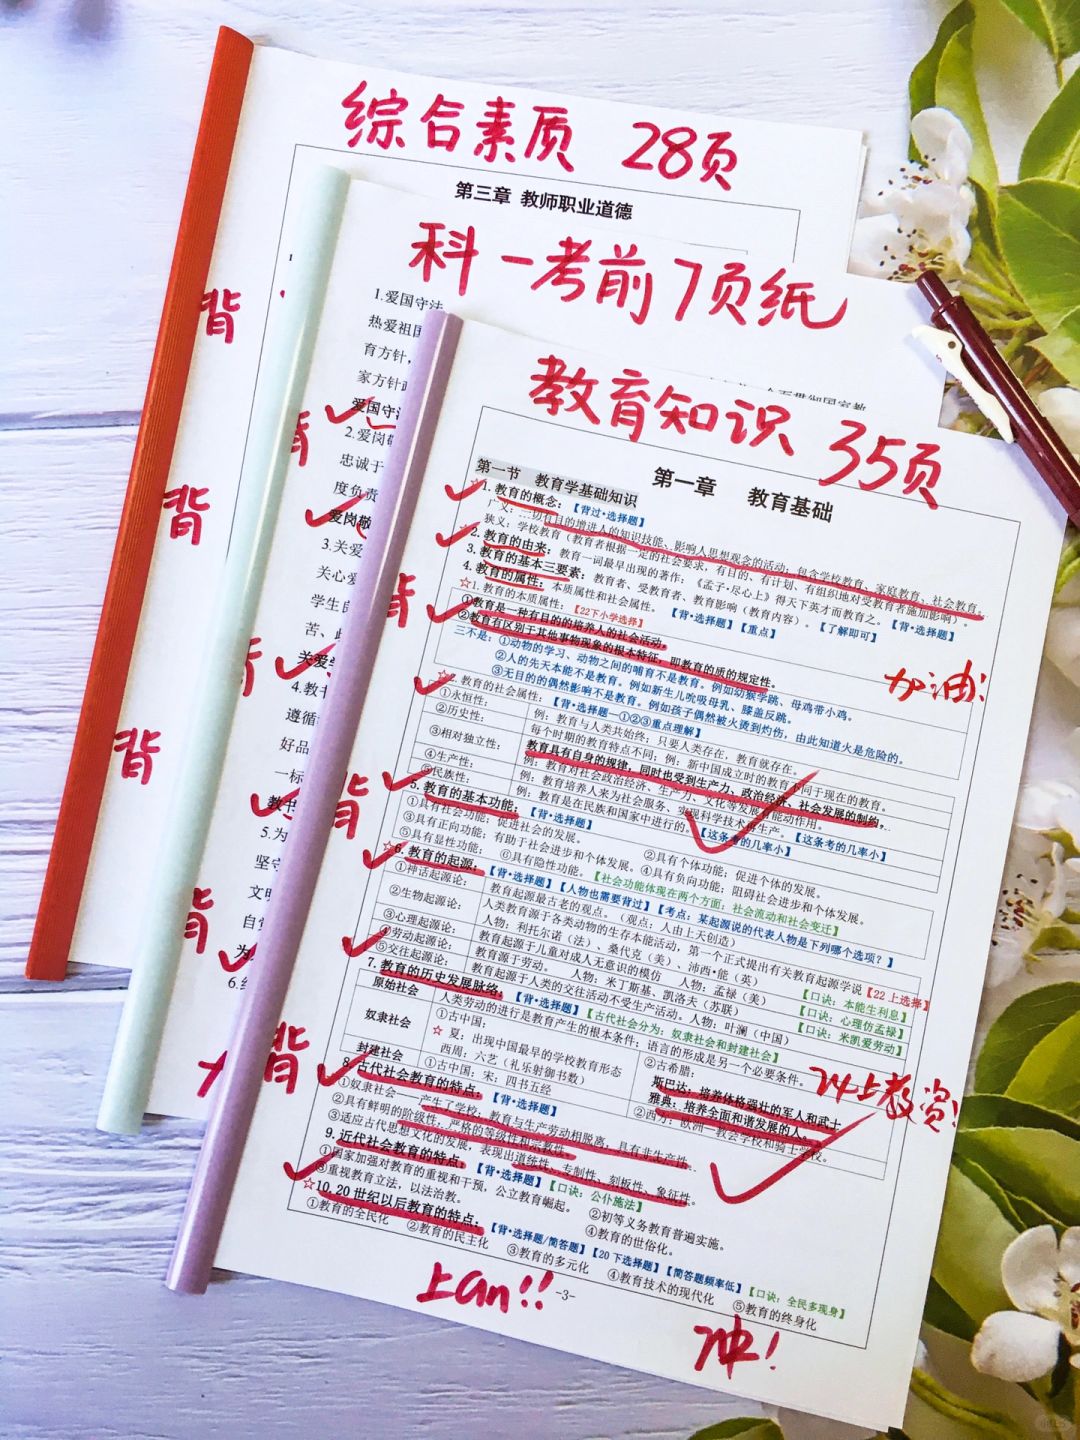 综合素质 28页
第三章 教师职业道德
科一考前7页纸
1.爱国守法
热爱祖国
育方针，
家方针政
爱国守法
2.爱岗敬
忠诚于
度负责
爱岗敬
3.关爱
关心爱
学生自
苦、
关爱学
4.教书
遵循
好品
一标
教书
5.为
坚守
文明
自觉
为
6.终
背
背
背
背
背
背
教育知识 35页
第一章 教育基础
第一节 教育学基础知识
☆1. 教育的概念：【背过·选择题】
广义：一切有目的增进人的知识技能、影响人思想观念的活动，包含学校教育、家庭教育、社会教育。
狭义：学校教育（教育者根据一定的社会要求，有目的、有计划、有组织地对受教育者施加影响）。
2. 教育的由来：教育一词最早出现的著作：《孟子·尽心上》得天下英才而教育之。【背·选择题】
3. 教育的基本三要素：教育者、受教育者、教育影响（教育内容）。【了解即可】
4. 教育的属性：本质属性和社会属性。【背·选择题】【重点】
☆1. 教育的本质属性：【22下小学选择】
①教育是一种有目的的培养人的社会活动。
②教育有区别于其他事物现象的根本特征，即教育的质的规定性。
三不是：①动物的学习、动物之间的哺育不是教育。例如幼猴学跳、母鸡带小鸡。
②人的先天本能不是教育。例如新生儿吮吸母乳、膝盖反跳。
③无目的的偶然影响不是教育。例如孩子偶然被火烫到灼伤，由此知道火是危险的。
☆2. 教育的社会属性：【背·选择题—①②③重点理解】
①永恒性： 例：教育与人类共始终；只要人类存在，教育就存在。
②历史性： 每个时期的教育特点不同；例：新中国成立时的教育不同于现在的教育。
③相对独立性： 教育具有自身的规律，同时也受到生产力、政治经济、社会发展的制约，
例：教育对社会政治经济、生产力、文化等发展有能动作用。
④生产性： 例：教育培养人来为社会服务，实现科学技术再生产。【这条考的几率小】
⑤民族性： 例：教育是在民族和国家中进行的。【这条考的几率小】
5. 教育的基本功能：【背·选择题】
①具有社会功能：促进社会的发展。 ②具有个体功能：促进个体的发展。
③具有正向功能：有助于社会进步和个体发展。④具有负向功能：阻碍社会进步和个体发展。
⑤具有显性功能； ⑥具有隐性功能。【社会功能体现在两个方面：社会流动和社会变迁】
☆6. 教育的起源：【背·选择题】【人物也需要背过】【考点：某起源说的代表人物是下列哪个选项？】
①神话起源论： 教育起源最古老的观点。（观点：人由上天创造）
②生物起源论： 人类教育源于各类动物的生存本能活动，第一个正式提出有关教育起源学说【22上选择】
人物：利托尔诺（法）、桑代克（美）、沛西·能（英） 【口诀：本能生利息】
③心理起源论： 教育起源于儿童对成人无意识的模仿 人物：孟禄（美） 【口诀：心理仿孟禄】
④劳动起源论： 教育源于劳动。 人物：米丁斯基、凯洛夫（苏联） 【口诀：米凯爱劳动】
⑤交往起源论： 教育起源于人类的交往活动不受生产活动。人物：叶澜（中国）
7. 教育的历史发展脉络：【背·选择题】【古代社会分为：奴隶社会和封建社会】
原始社会 人类劳动的进行是教育产生的根本条件；语言的形成是另一个必要条件。
奴隶社会 ①古中国：
☆ 夏：出现中国最早的学校教育形态
西周：六艺（礼乐射御书数）
②古希腊：
斯巴达：培养体格强壮的军人和武士
雅典：培养全面和谐发展的人。
封建社会 ①古中国：宋：四书五经 ②西方：欧洲—教会学校和骑士学校。
8. 古代社会教育的特点：【背·选择题】
①奴隶社会——产生了学校，教育与生产劳动相脱离，具有非生产性。
②具有鲜明的阶级性，严格的等级性和宗教性。
③适应古代思想文化的发展，表现出道统性、专制性、刻板性、象征性。
9. 近代社会教育的特点：【背·选择题】【口诀：公仆施法】
①国家加强对教育的重视和干预，公立教育崛起。 ②初等义务教育普遍实施。
③重视教育立法，以法治教。 ④教育的世俗化。
☆10. 20世纪以后教育的特点：【背·选择题/简答题】【20下选择题】【简答题频率低】【口诀：全民多现身】
①教育的全民化 ②教育的民主化 ③教育的多元化 ④教育技术的现代化 ⑤教育的终身化
-3-
加油！
24上教资！
上an!!
冲！